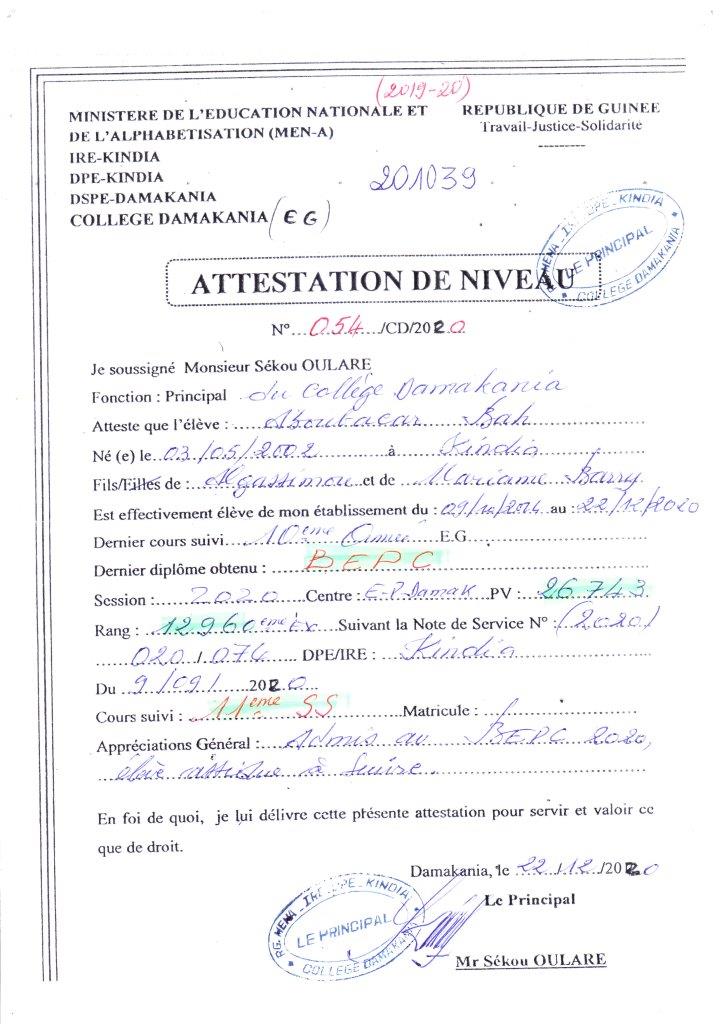 (2019-20)
MINISTERE DE L'EDUCATION NATIONALE ET DE L'ALPHABETISATION (MEN-A)
REPUBLIQUE DE GUINEE
Travail-Justice-Solidarité
IRE-KINDIA
DPE-KINDIA
DSPE-DAMAKANIA
COLLEGE DAMAKANIA (EG)
201039
LE PRINCIPAL
COLLEGE DAMAKANIA
ATTESTATION DE NIVEAU
N° 054 /CD/2020
Je soussigné Monsieur Sékou OULARE
Fonction : Principal du Collège Damakania
Atteste que l'élève : Aboubacar Bah
Né (e) le 03/05/2002 à Kindia
Fils/Filles de : Algassimou et de Mariame Barry
Est effectivement élève de mon établissement du : au : 22/12/2020
Dernier cours suivi 10ème Année E.G
Dernier diplôme obtenu : BEPC
Session : 2020 Centre : E-P-Damak PV : 26743
Rang : 12960ème Ex Suivant la Note de Service N° : (2020)
020/074 DPE/IRE : Kindia
Du 9/09/ 2020
Cours suivi : 11ème SS Matricule :
Appréciations Général : Admis au BEPC 2020,
élève à
En foi de quoi, je lui délivre cette présente attestation pour servir et valoir ce
que de droit.
Damakania, le 22/12/2020
Le Principal
RG. MENA - IRE - DPE - KINDIA
LE PRINCIPAL
COLLEGE DAMAKANIA
Mr Sékou OULARE